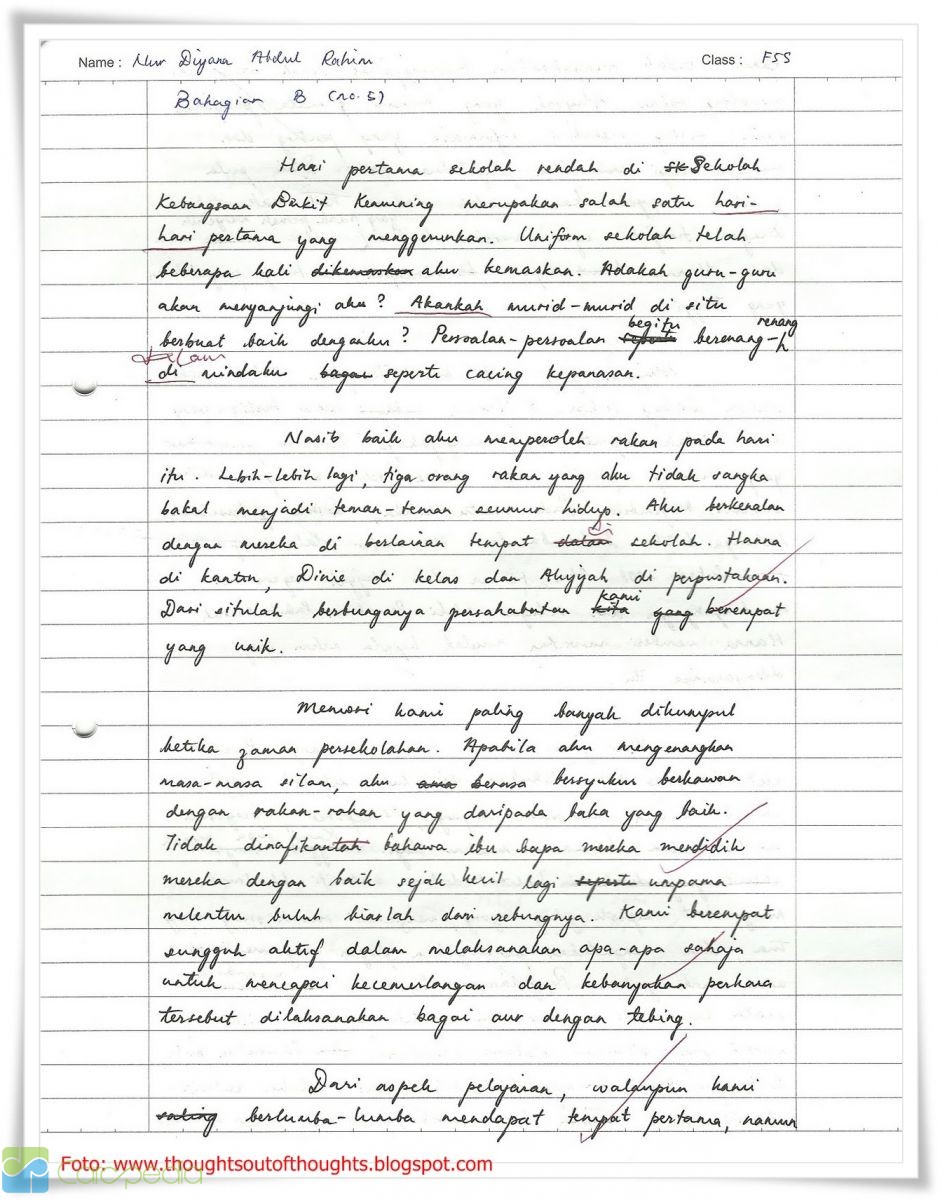 Name : Nur Diyana Abdul Rahim Class : F5S
Bahagian B (no. 5)
Hari pertama sekolah rendah di sk Sekolah
Kebangsaan Bukit Kemuning merupakan salah satu hari-
hari pertama yang menggerunkan. Uniform sekolah telah
beberapa kali dikemaskan aku kemaskan. Adakah guru-guru
akan menyanjungi aku? Akankah murid-murid di situ
berbuat baik denganku? Persoalan-persoalan seperti begitu berenang-renang
dalam
di mindaku bagai seperti cacing kepanasan.
Nasib baik aku memperoleh rakan pada hari
itu. Lebih-lebih lagi, tiga orang rakan yang aku tidak sangka
bakal menjadi teman-teman seumur hidup. Aku berkenalan
dengan mereka di berlainan tempat dalam di sekolah. Hanna
di kantin, Dinie di kelas dan Aliyyah di perpustakaan.
Dari situlah berbunganya persahabatan kita kami yang berempat
yang unik.
Memori kami paling banyak dikumpul
ketika zaman persekolahan. Apabila aku mengenangkan
masa-masa silam, aku ama berasa bersyukur berkawan
dengan rakan-rakan yang daripada baka yang baik.
Tidak dinafikantah bahawa ibu bapa mereka mendidik
mereka dengan baik sejak kecil lagi seperti umpama
melentur buluh biarlah dari rebungnya. Kami berempat
sungguh aktif dalam melaksanakan apa-apa sahaja
untuk mencapai kecemerlangan dan kebanyakan perkara
tersebut dilaksanakan bagai aur dengan tebing.
Dari aspek pelajaran, walaupun kami
saling berlumba-lumba mendapat tempat pertama, namun
Foto: www.thoughtsoutofthoughts.blogspot.com